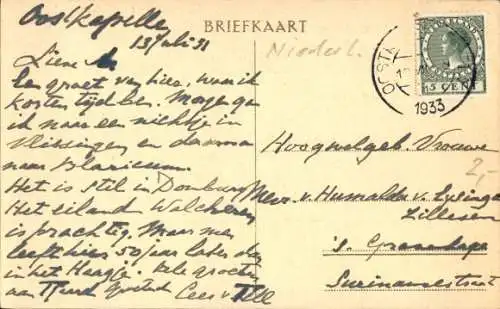 Oostkapelle
13 juli 31
BRIEFKAART
Niederl.
Lieve
Een groet van hier, waar ik
korten tijd ben. Morgen ga
ik naar een nichtje in
Vlissingen en daarna
naar Blaricum.
Het is stil in Domburg
Het eiland Walcheren
is prachtig. Maar men
leeft hier 50 jaar later dan
in het Haagje. Vele groeten
aan Tjeerd Cees v
OOSTK
1933
NEDERLAND
5 CENT
Hoogwelgeb. Vrouwe
2,-
Mevr. v. Humalda v. Eysinga
Lillesen
's Gravenhage
Surinamestraat